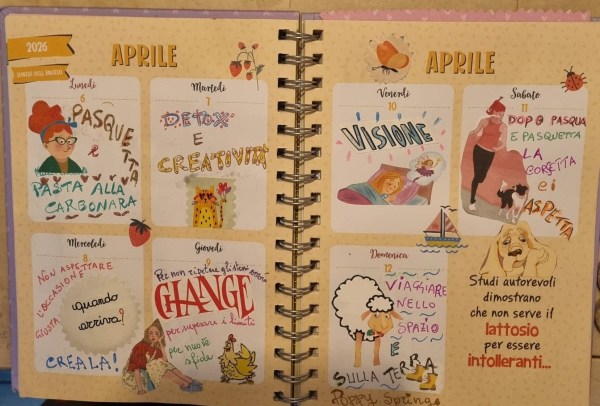 2026
APRILE
Lunedì
6
PASQUETTA
e
PASTA ALLA
CARBONARA
Martedì
7
DETOX
E
CREATIVITÀ
Mercoledì
8
NON ASPETTARE
L'OCCASIONE
GIUSTA
quando
arriva?
CREALA!
Giovedì
9
Per non ripetere gli stessi errori
CHANGE
per superare i limiti
per nuove
sfide
APRILE
Venerdì
10
VISIONE
Sabato
11
DOPO PASQUA
E PASQUETTA
LA
CORSETTA
ci
ASPETTA
Domenica
12
VIAGGIARE
NELLO
SPAZIO
E
SULLA TERRA
POPPY Spring
Studi autorevoli
dimostrano
che non serve il
lattosio
per essere
intolleranti...